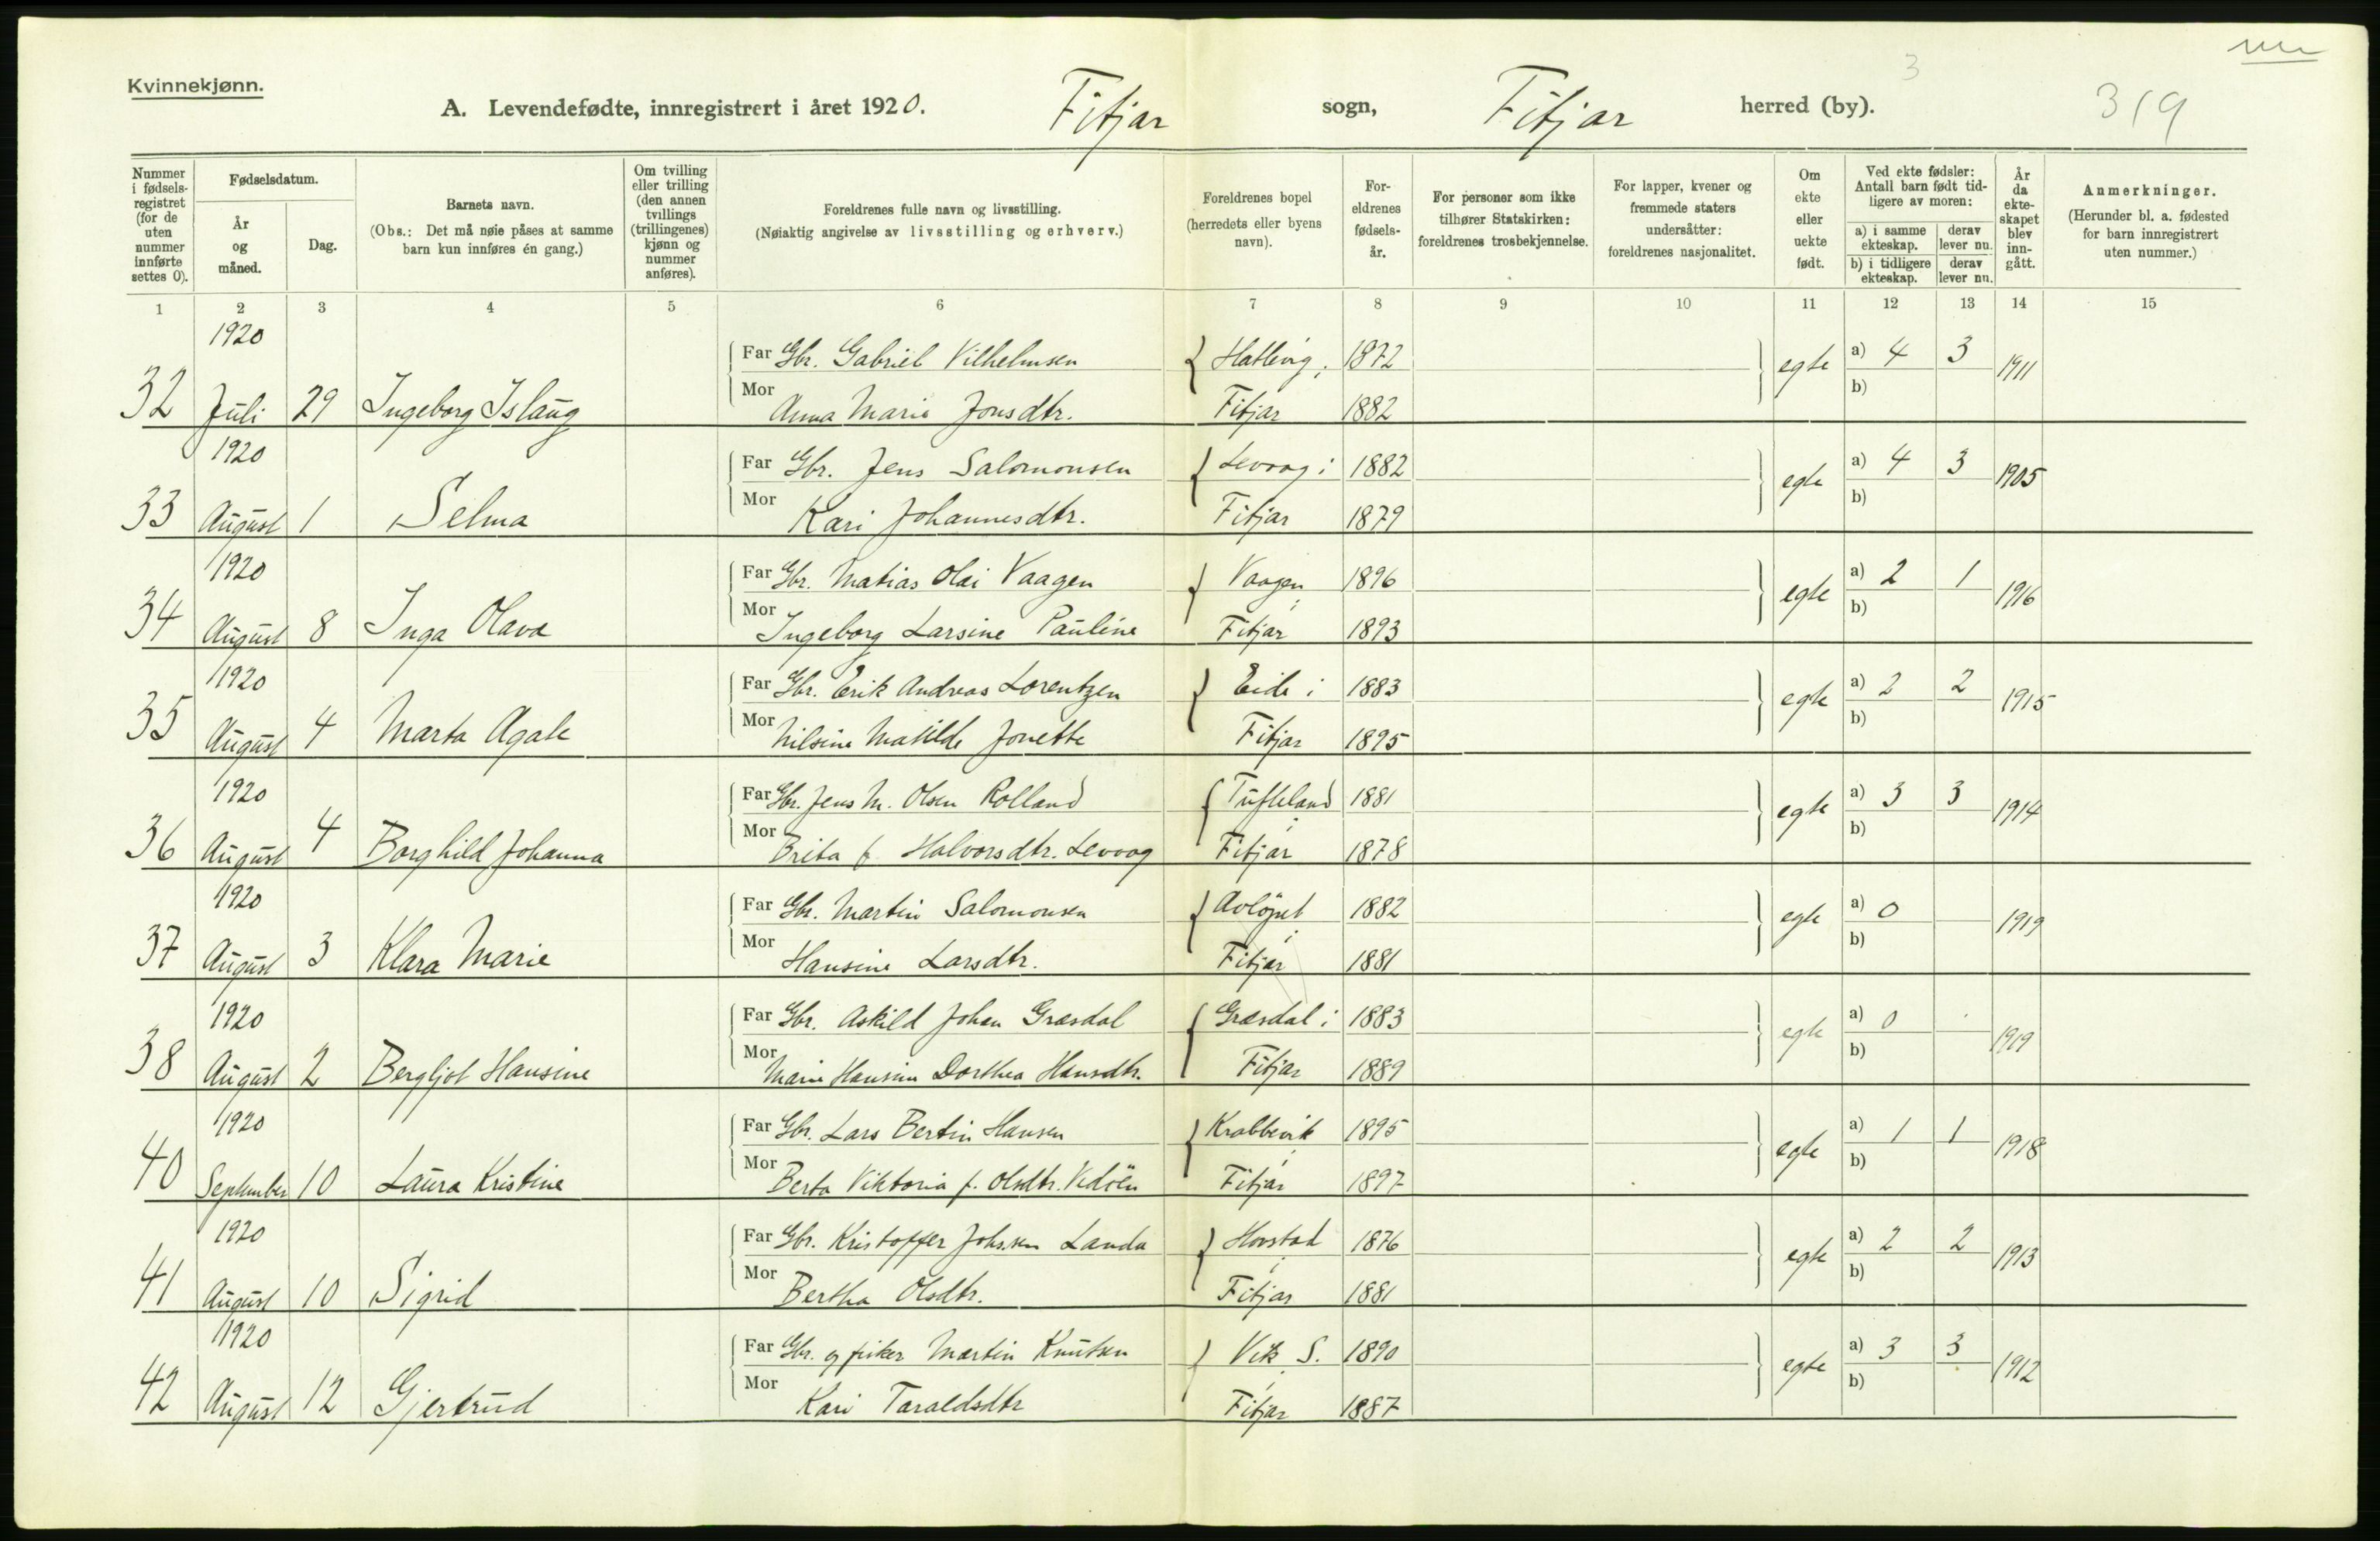 Kvinnekjønn.
A. Levendefødte, innregistrert i året 1920. Fitjar sogn, Fitjar herred (by). 3 319
Nummer i fødsels-registret (for de uten nummer innførte settes 0).
Fødselsdatum.
År og måned.
Dag.
Barnets navn.
(Obs.: Det må nøie påses at samme barn kun innføres én gang.)
Om tvilling eller trilling (den annen tvillings (trillingenes) kjønn og nummer anføres).
Foreldrenes fulle navn og livsstilling.
(Nøiaktig angivelse av livsstilling og erhverv.)
Foreldrenes bopel (herredets eller byens navn).
For-eldrenes fødsels-år.
For personer som ikke tilhører Statskirken: foreldrenes trosbekjennelse.
For lapper, kvener og fremmede staters undersåtter: foreldrenes nasjonalitet.
Om ekte eller uekte født.
Ved ekte fødsler: Antall barn født tid-ligere av moren:
a) i samme ekteskap. derav lever nu.
b) i tidligere ekteskap. derav lever nu.
År da ekte-skapet blev inn-gått.
Anmerkninger.
(Herunder bl. a. fødested for barn innregistrert uten nummer.)
1 2 3 4 5 6 7 8 9 10 11 12 13 14 15
1920 Far Gbr. Gabriel Vilhelmsen Hatlevig, 1872 egte a) 4 3 1911
32 Juli 29 Ingeborg Islaug Mor Anna Marie Jonsdtr. Fitjar 1882 b)
1920 Far Gbr. Jens Salomonsen Levaag i 1882 egte a) 4 3 1905
33 August 1 Selma Mor Kari Johannesdtr. Fitjar 1879 b)
1920 Far Gbr. Matias Olai Vaagen Vaagen i 1896 egte a) 2 1 1916
34 August 8 Inga Olava Mor Ingeborg Larsine Pauline Fitjar 1893 b)
1920 Far Gbr. Erik Andreas Lorentzen Eide i 1883 egte a) 2 2 1915
35 August 4 Marta Agate Mor Nilsine Matilde Jonette Fitjar 1895 b)
1920 Far Gbr. Jens M. Olsen Rolland Tufteland i 1881 egte a) 3 3 1914
36 August 4 Borghild Johanna Mor Brita f. Halvorsdtr. Levaag Fitjar 1878 b)
1920 Far Gbr. Martin Salomonsen Avløpet i 1882 egte a) 0 1919
37 August 3 Klara Marie Mor Hansine Larsdtr. Fitjar 1881 b)
1920 Far Gbr. Askild Johan Græsdal Græsdal i 1883 egte a) 0 1919
38 August 2 Bergljot Hansine Mor Marie Hansine Dorthea Hansdtr. Fitjar 1889 b)
1920 Far Gbr. Lars Bertin Hansen Krabbevik i 1895 egte a) 1 1 1918
40 September 10 Laura Kristine Mor Berta Viktoria f. Olsdtr. Vidöen Fitjar 1897 b)
1920 Far Gbr. Kristoffer Johs.sen Landa Horstad i 1876 egte a) 2 2 1913
41 August 10 Sigrid Mor Bertha Olsdtr. Fitjar 1881 b)
1920 Far Gbr. og fisker Martin Knutsen Vik S. i 1890 egte a) 3 3 1912
42 August 12 Gjertrud Mor Kari Taraldsdtr Fitjar 1887 b)